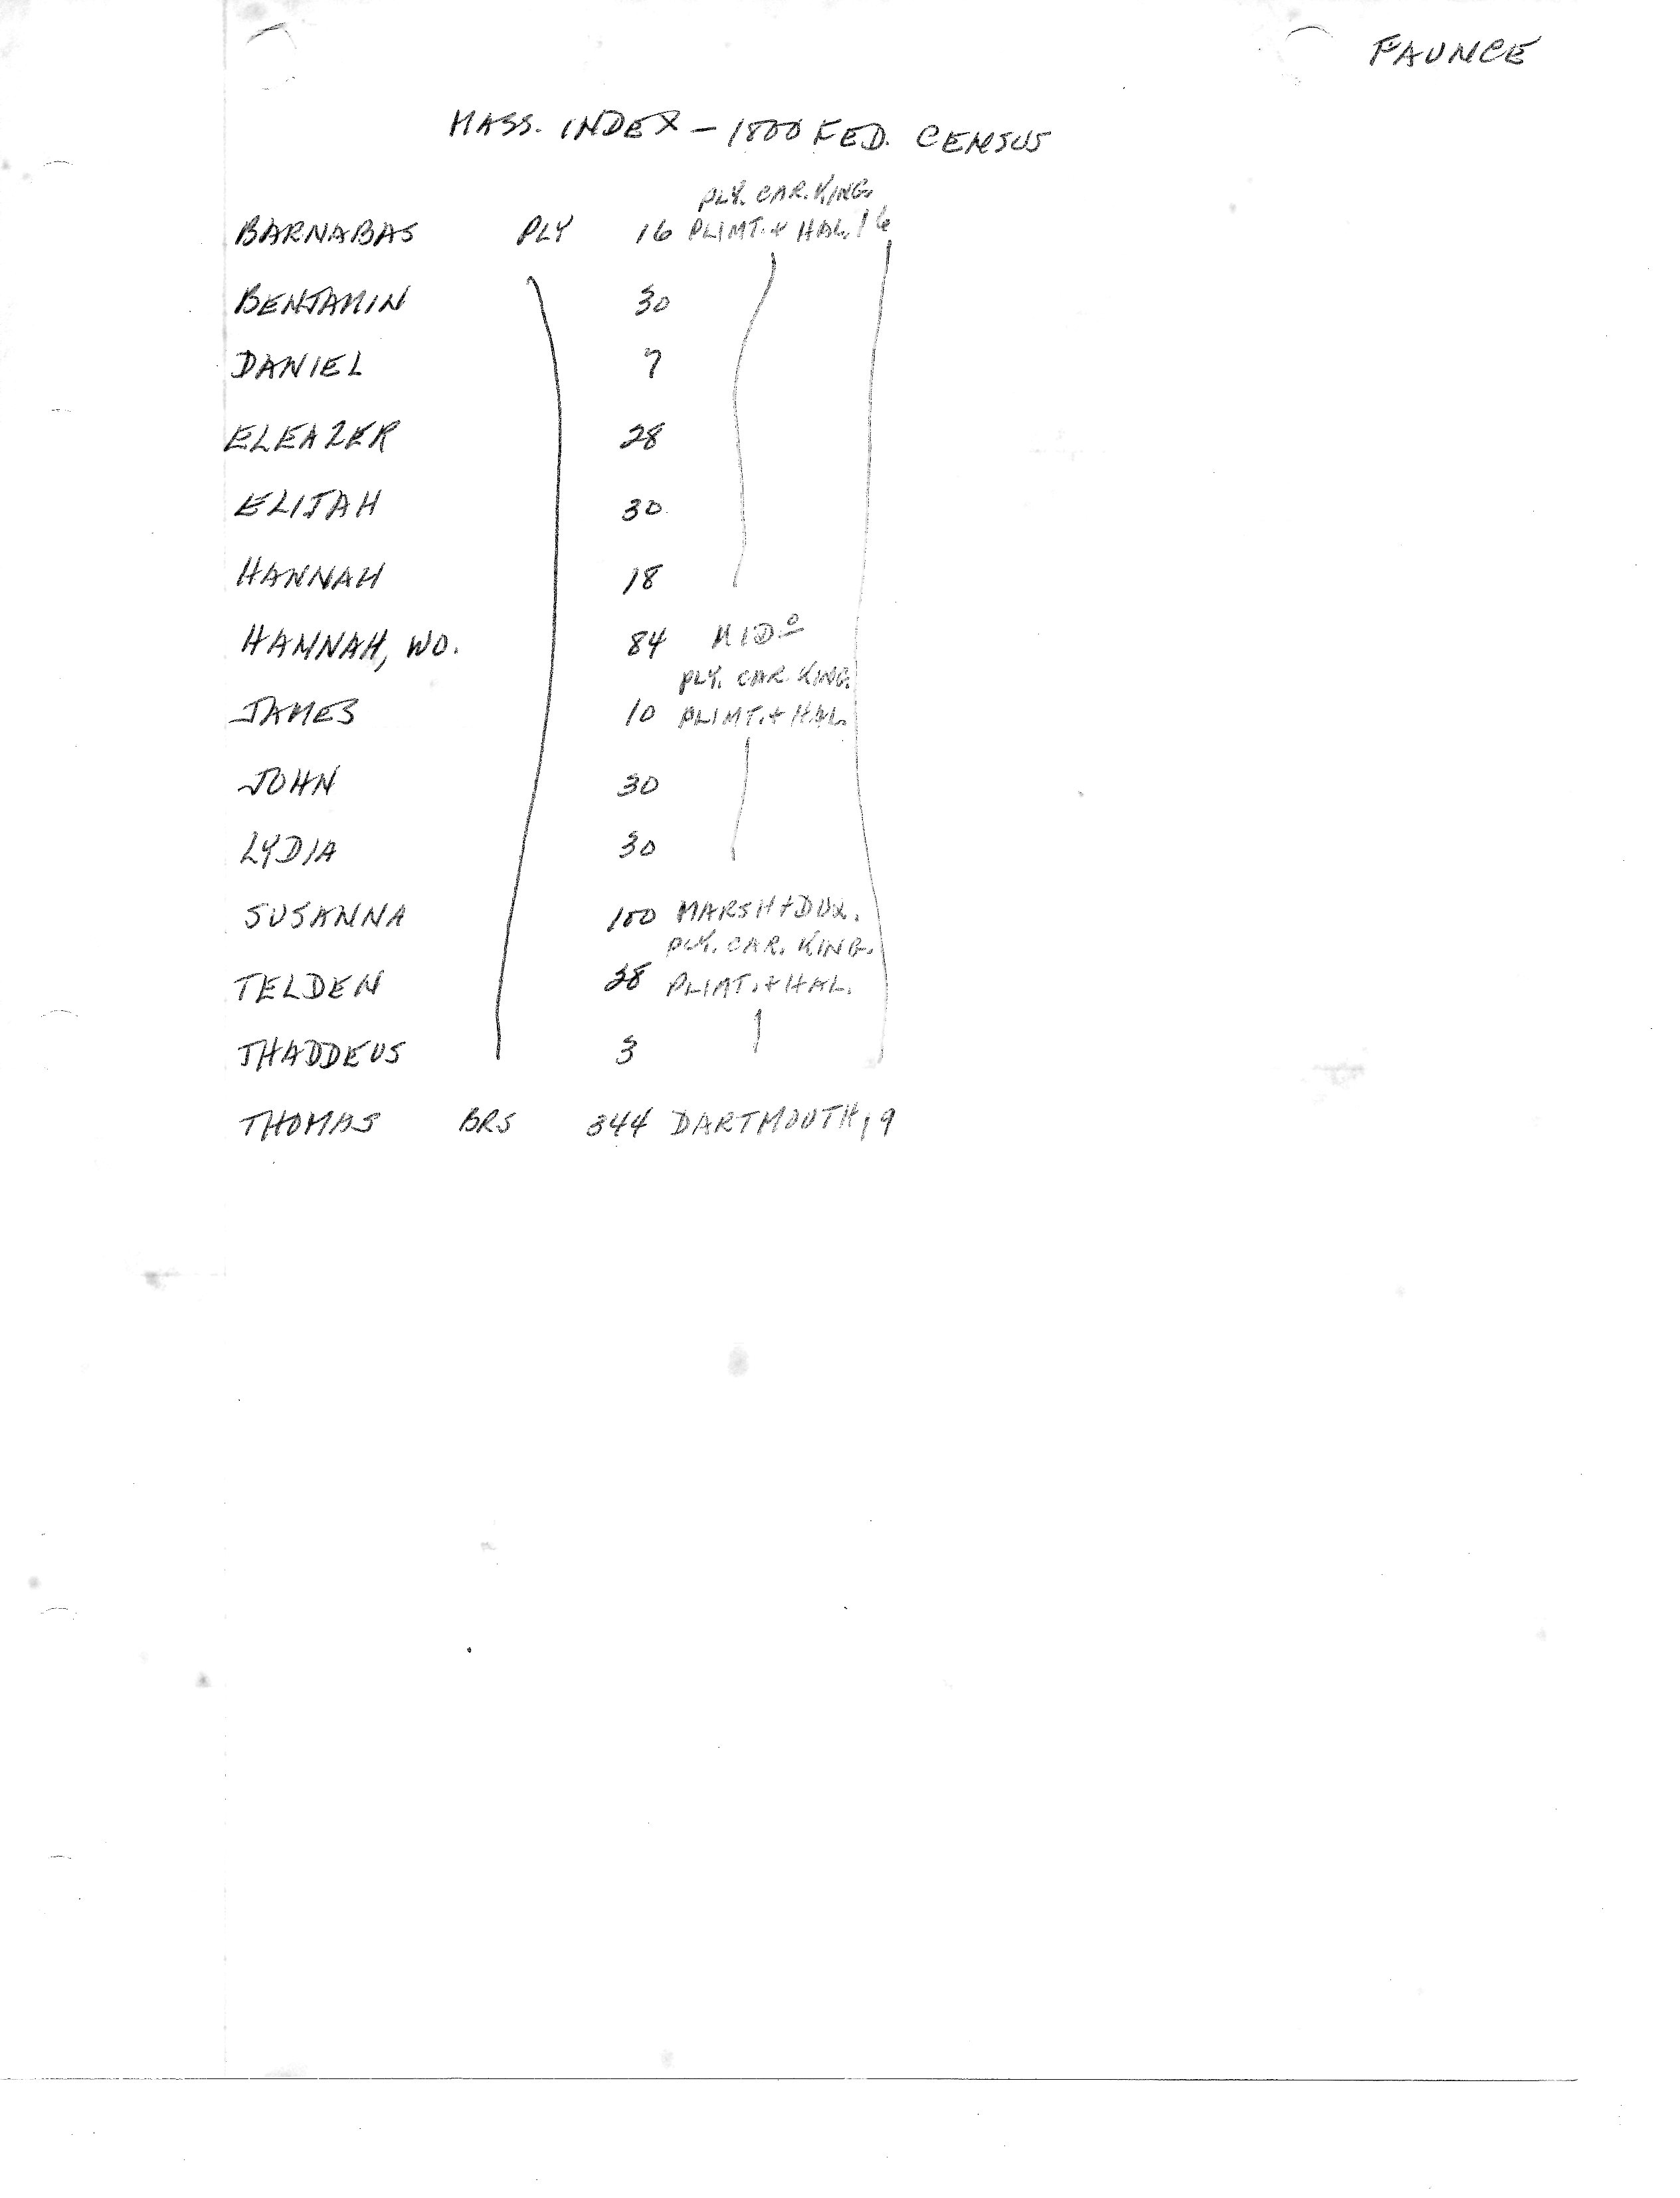 FAUNCE
MASS. INDEX – 1800 FED. CENSUS
PLY. CAR. KING.
BARNABAS PLY 16 PLIMT. + HAL. 16
BENJAMIN 30
DANIEL 7
ELEAZER 28
ELIJAH 30
HANNAH 18
HANNAH, WD. 84 MID.o
PLY. CAR. KING.
JAMES 10 PLIMT. + HAL.
JOHN 30
LYDIA 30
SUSANNA 100 MARSH + DUX.
PLY. CAR. KING.
TELDEN 28 PLIMT. + HAL.
THADDEUS 3
THOMAS BRS 344 DARTMOUTH, 9